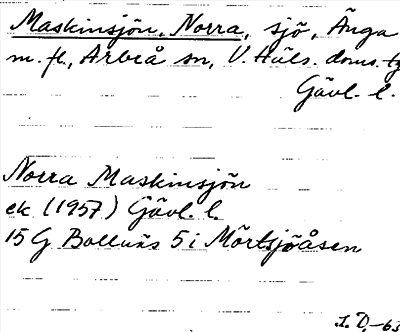 Maskinsjön, Norra, sjö, Änga
m. fl., Arbrå sn, V. Häls. doms.
Gävl. l.
Norra Maskinsjön
ek (1957) Gävl. l.
15 G Bollnäs 5 i Mörtsjöåsen